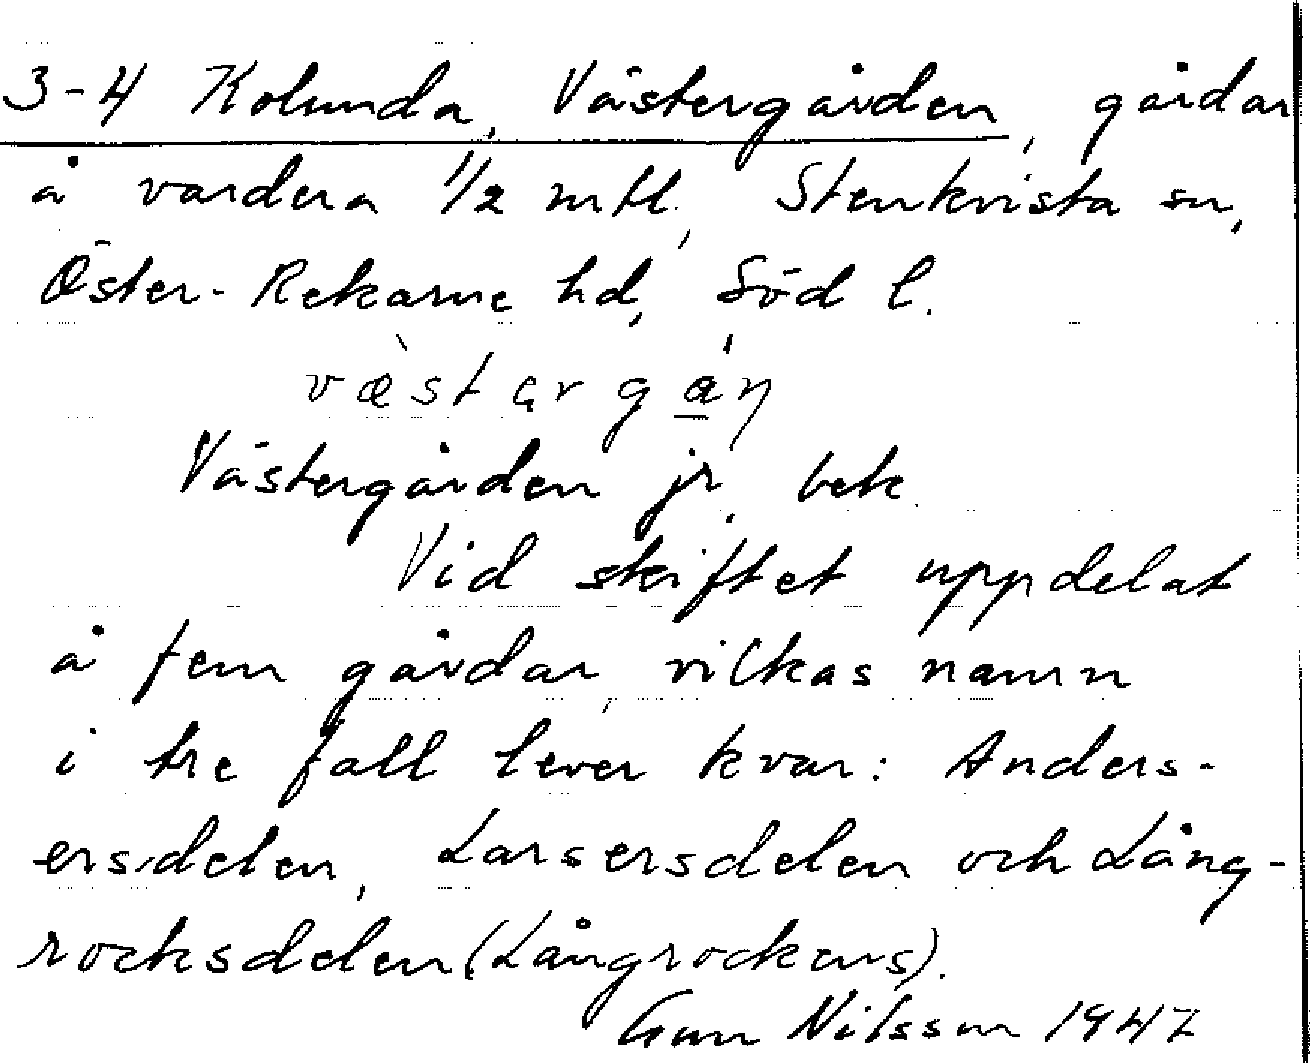 3-4 Kolunda, Västergården, gårdar
å vardera 1/2 mtl, Stenkvista sn,
Öster-Rekarne hd, Söd l.
væ̀stərgá̱ɳ
Västergården jr, bek.
Vid skiftet uppdelat
å fem gårdar, vilkas namn
i tre fall lever kvar: Anders-
ersdelen, Larsersdelen och Lång-
rocksdelen (Långrockens).
Gun Nilsson 1947